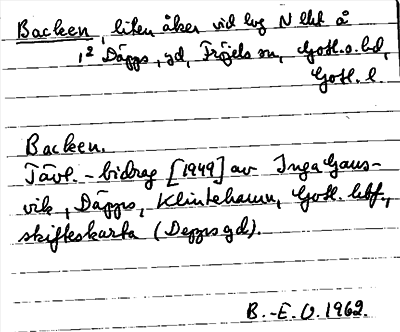 Backen, liten åker vid lvg N lht å
1² Däpps, gd, Fröjels sn, Gotl.s.hd,
Gotl. l.
Backen.
Tävl.-bidrag [1949] av Inga Gans-
vik, Däpps, Klintehamn, Gotl. hbf.,
skifteskarta (Depps gd).
B.-E. O. 1962.